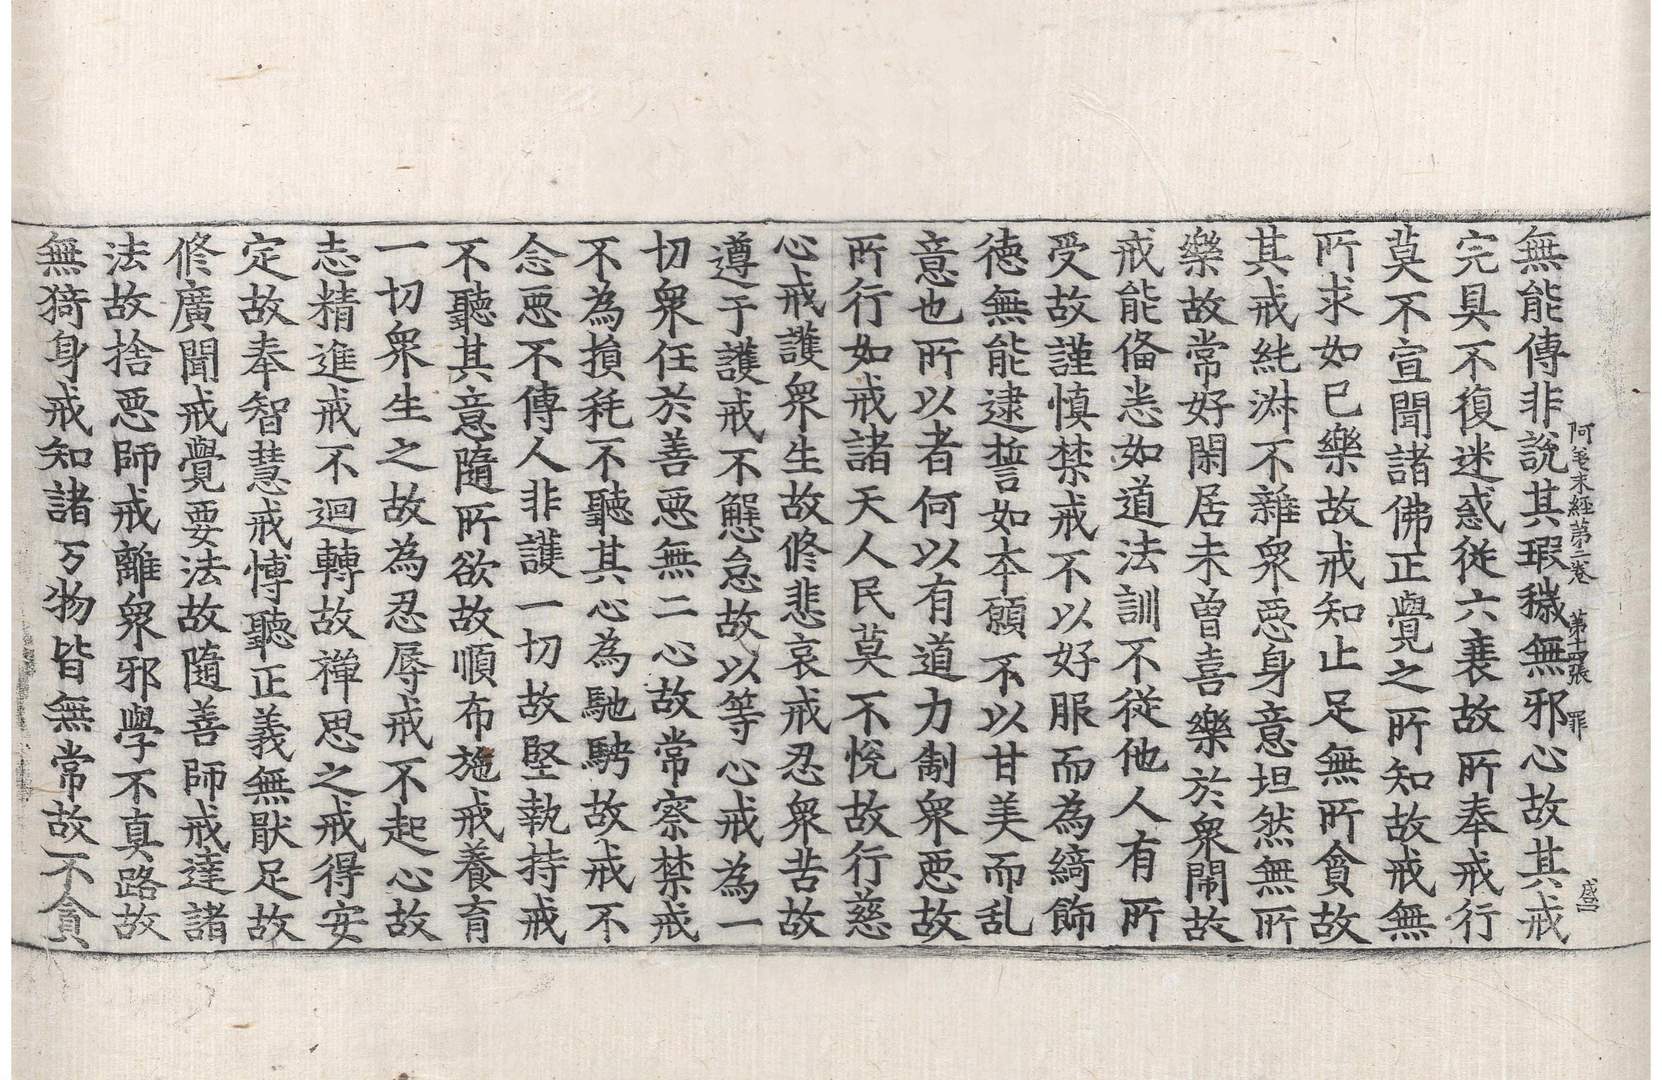 阿差末經第二卷　第十四張　罪
無能傳非說其瑕穢無邪心故其戒
完具不復迷惑從六衰故所奉戒行
莫不宣聞諸佛正覺之所知故戒無
所求如已樂故戒知止足無所貪故
其戒純淋不雜衆惡身意坦然無所
樂故常好閑居未曾喜樂於衆閙故
戒能俻恙如道法訓不從他人有所
受故謹慎禁戒不以好服而為綺飾
徳無能逮誓如本願不以甘美而乱
意也所以者何以有道力制衆惡故
所行如戒諸天人民莫不悅故行慈
心戒護衆生故修悲哀戒忍衆苦故
遵于護戒不懈怠故以等心戒為一
切衆任於善惡無二心故常察禁戒
不為損秏不聽其心為馳騁故戒不
念惡不傳人非護一切故堅執持戒
不聽其意隨所欲故順布施戒養育
一切衆生之故為忍辱戒不起心故
志精進戒不迴轉故禪思之戒得安
定故奉智慧戒愽聽正義無猒足故
修廣聞戒覺要法故隨善師戒達諸
法故捨惡師戒離衆邪學不真路故
無猗身戒知諸万物皆無常故不貪